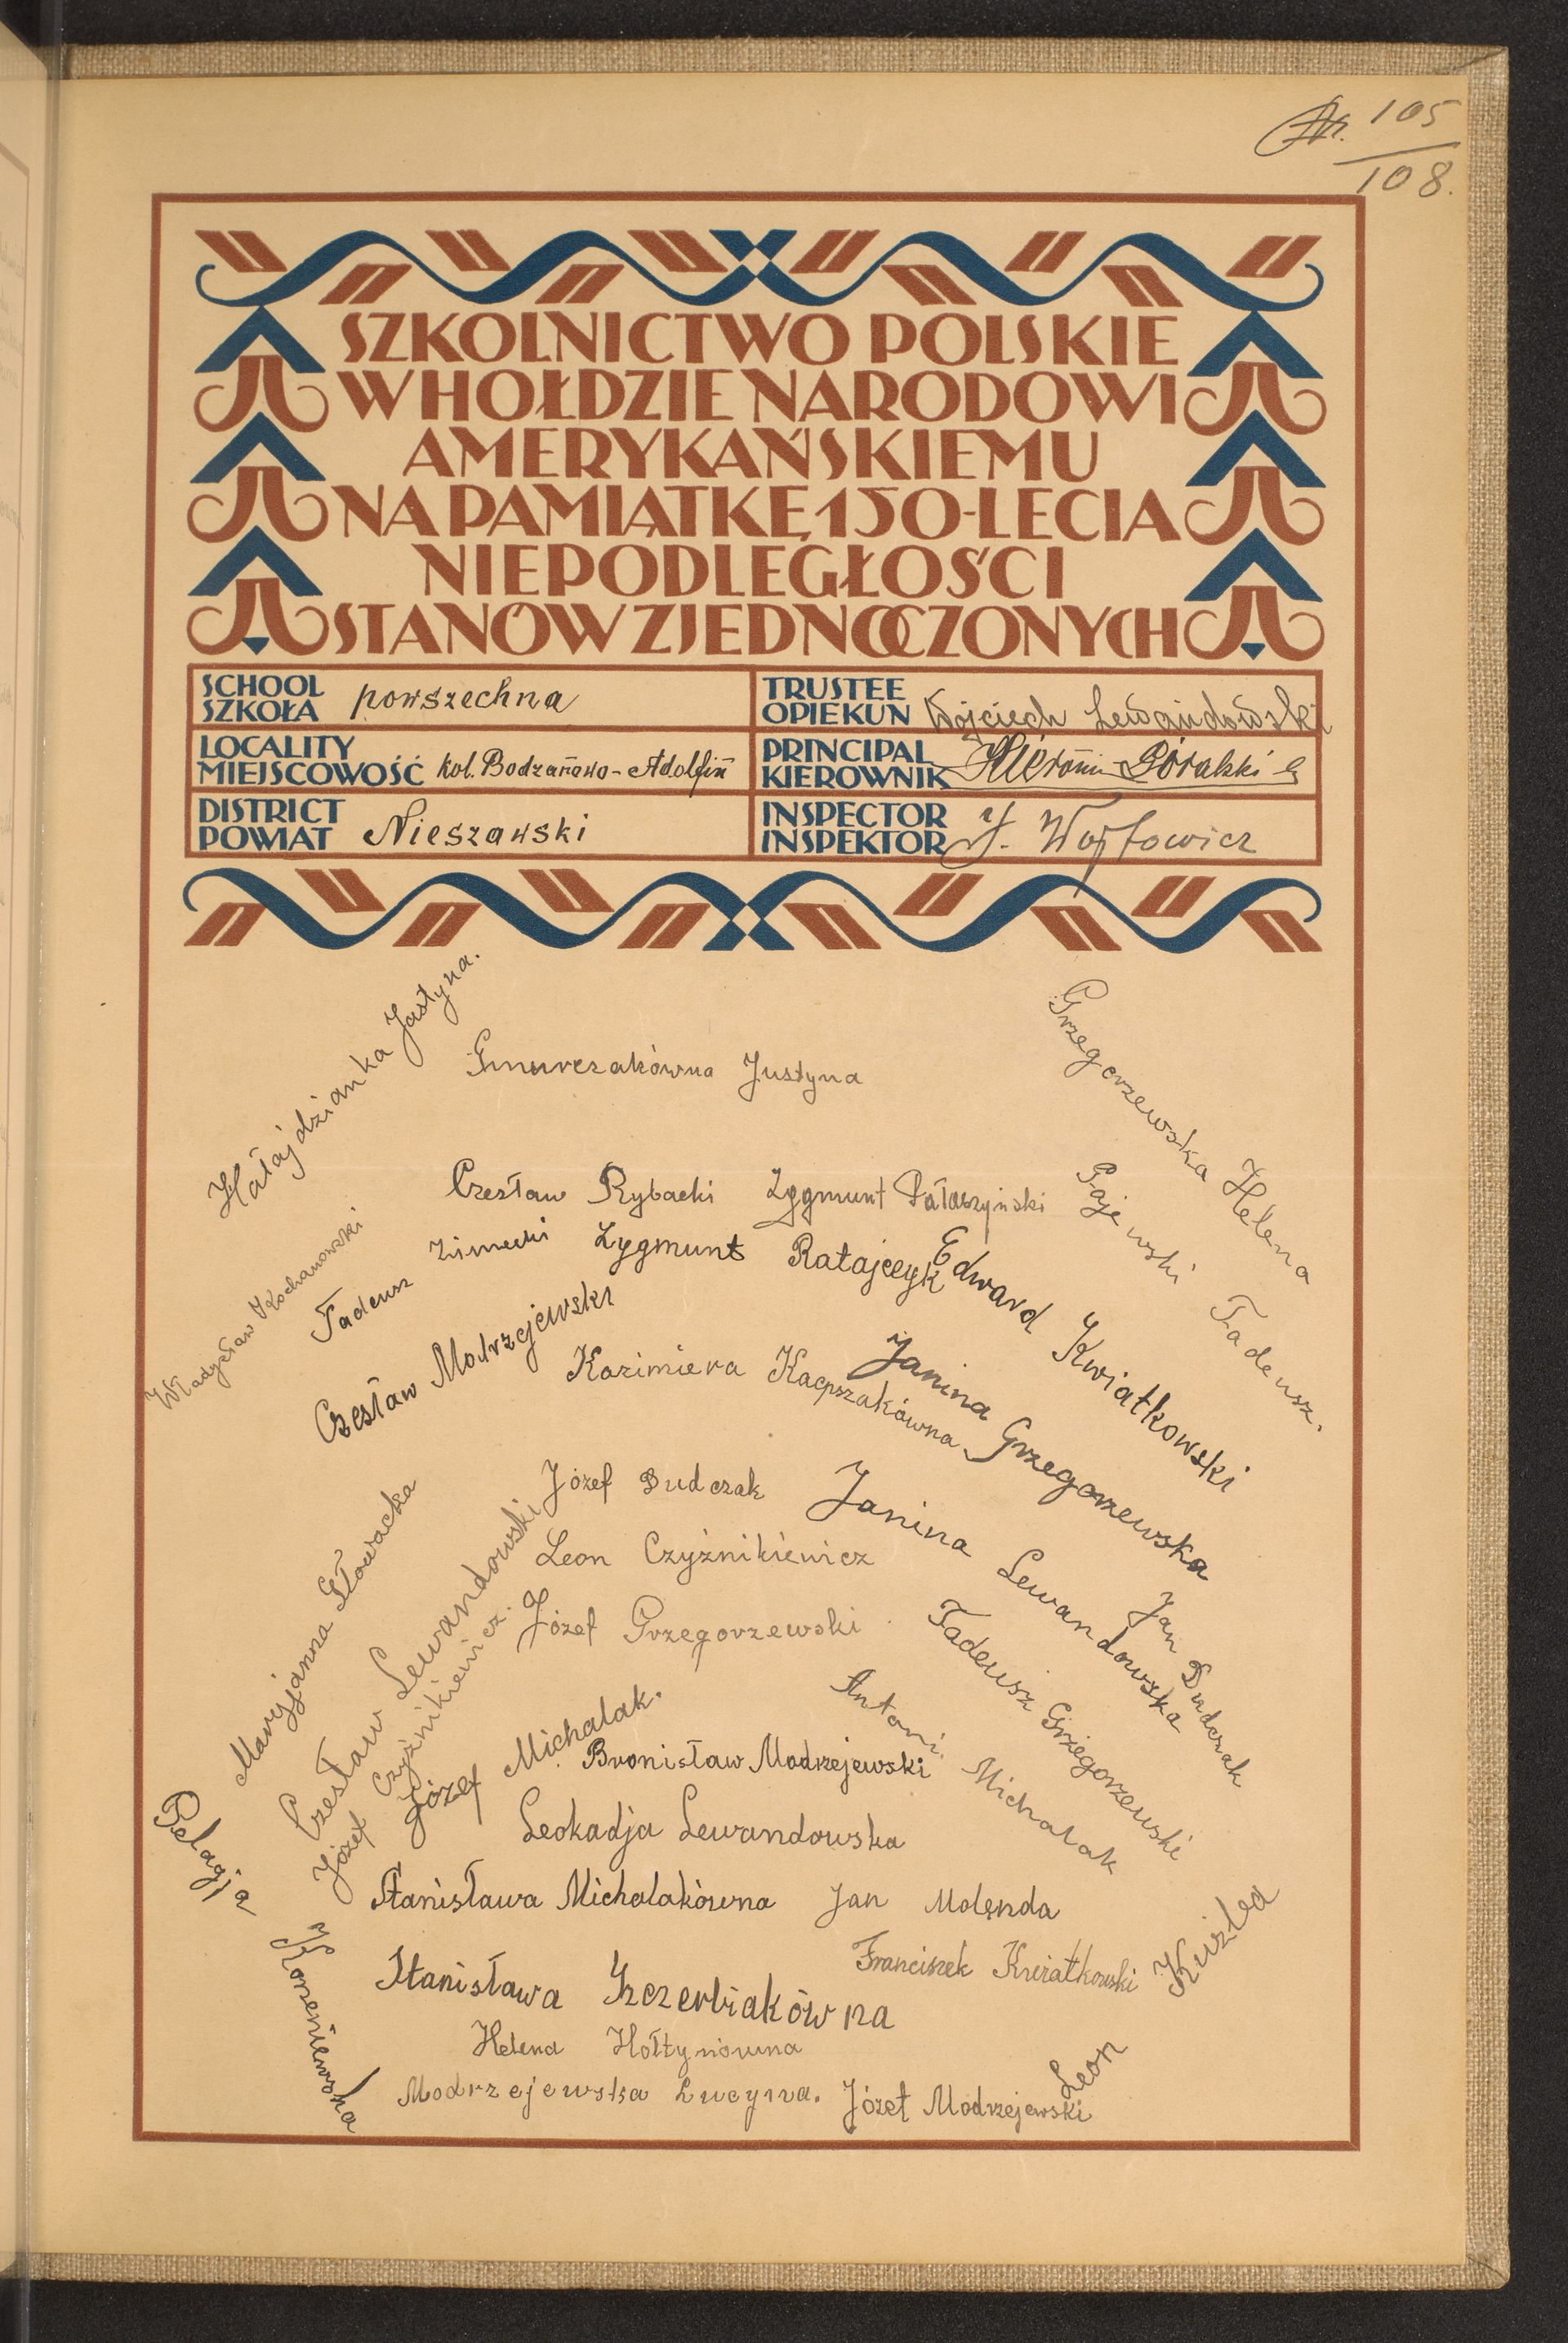 Nr. 105
108.
SZKOLNICTWO POLSKIE
W HOŁDZIE NARODOWI
AMERYKAŃSKIEMU
NA PAMIĄTKĘ 150-LECIA
NIEPODLEGŁOŚCI
STANÓW ZJEDNOCZONYCH
SCHOOL
SZKOŁA powszechna
TRUSTEE
OPIEKUN Wojciech Lewandowski
LOCALITY
MIEJSCOWOŚĆ kol. Bodzanowo-Adolfin
PRINCIPAL
KIEROWNIK Hieronim Góralski
DISTRICT
POWIAT Nieszawski
INSPECTOR
INSPEKTOR Wojtowicz
Hałajdzianka Justyna.
Gmurczakówna Justyna
Grzegorzewska Helena
Czesław Rybacki
Zygmunt Pałaszyński
Gajewski Tadeusz.
Władysław Kochanowski
Tadeusz Zimecki
Zygmunt Ratajczyk
Edward Kwiatkowski
Czesław Modrzejewski
Kazimiera Kacprzakówna
Janina Grzegorzewska
Józef Dudczak
Janina Lewandowska
Leon Czyżnikiewicz
Józef Grzegorzewski
Jan Dudczak
Tadeusz Grzegorzewski
Maryjanna Głowacka
Czesław Lewandowski
Józef Czyżnikiewicz.
Józef Michalak.
Antoni Michalak
Bronisław Modrzejewski
Leokadja Lewandowska
Pelagja Korzeniewska
Stanisława Michalakówna
Jan Molenda
Stanisława Szczerbiakówna
Franciszek Kwiatkowski
Leon Kuzba
Helena Hołtynówna
Modrzejewska Lucyna.
Józef Modrzejewski